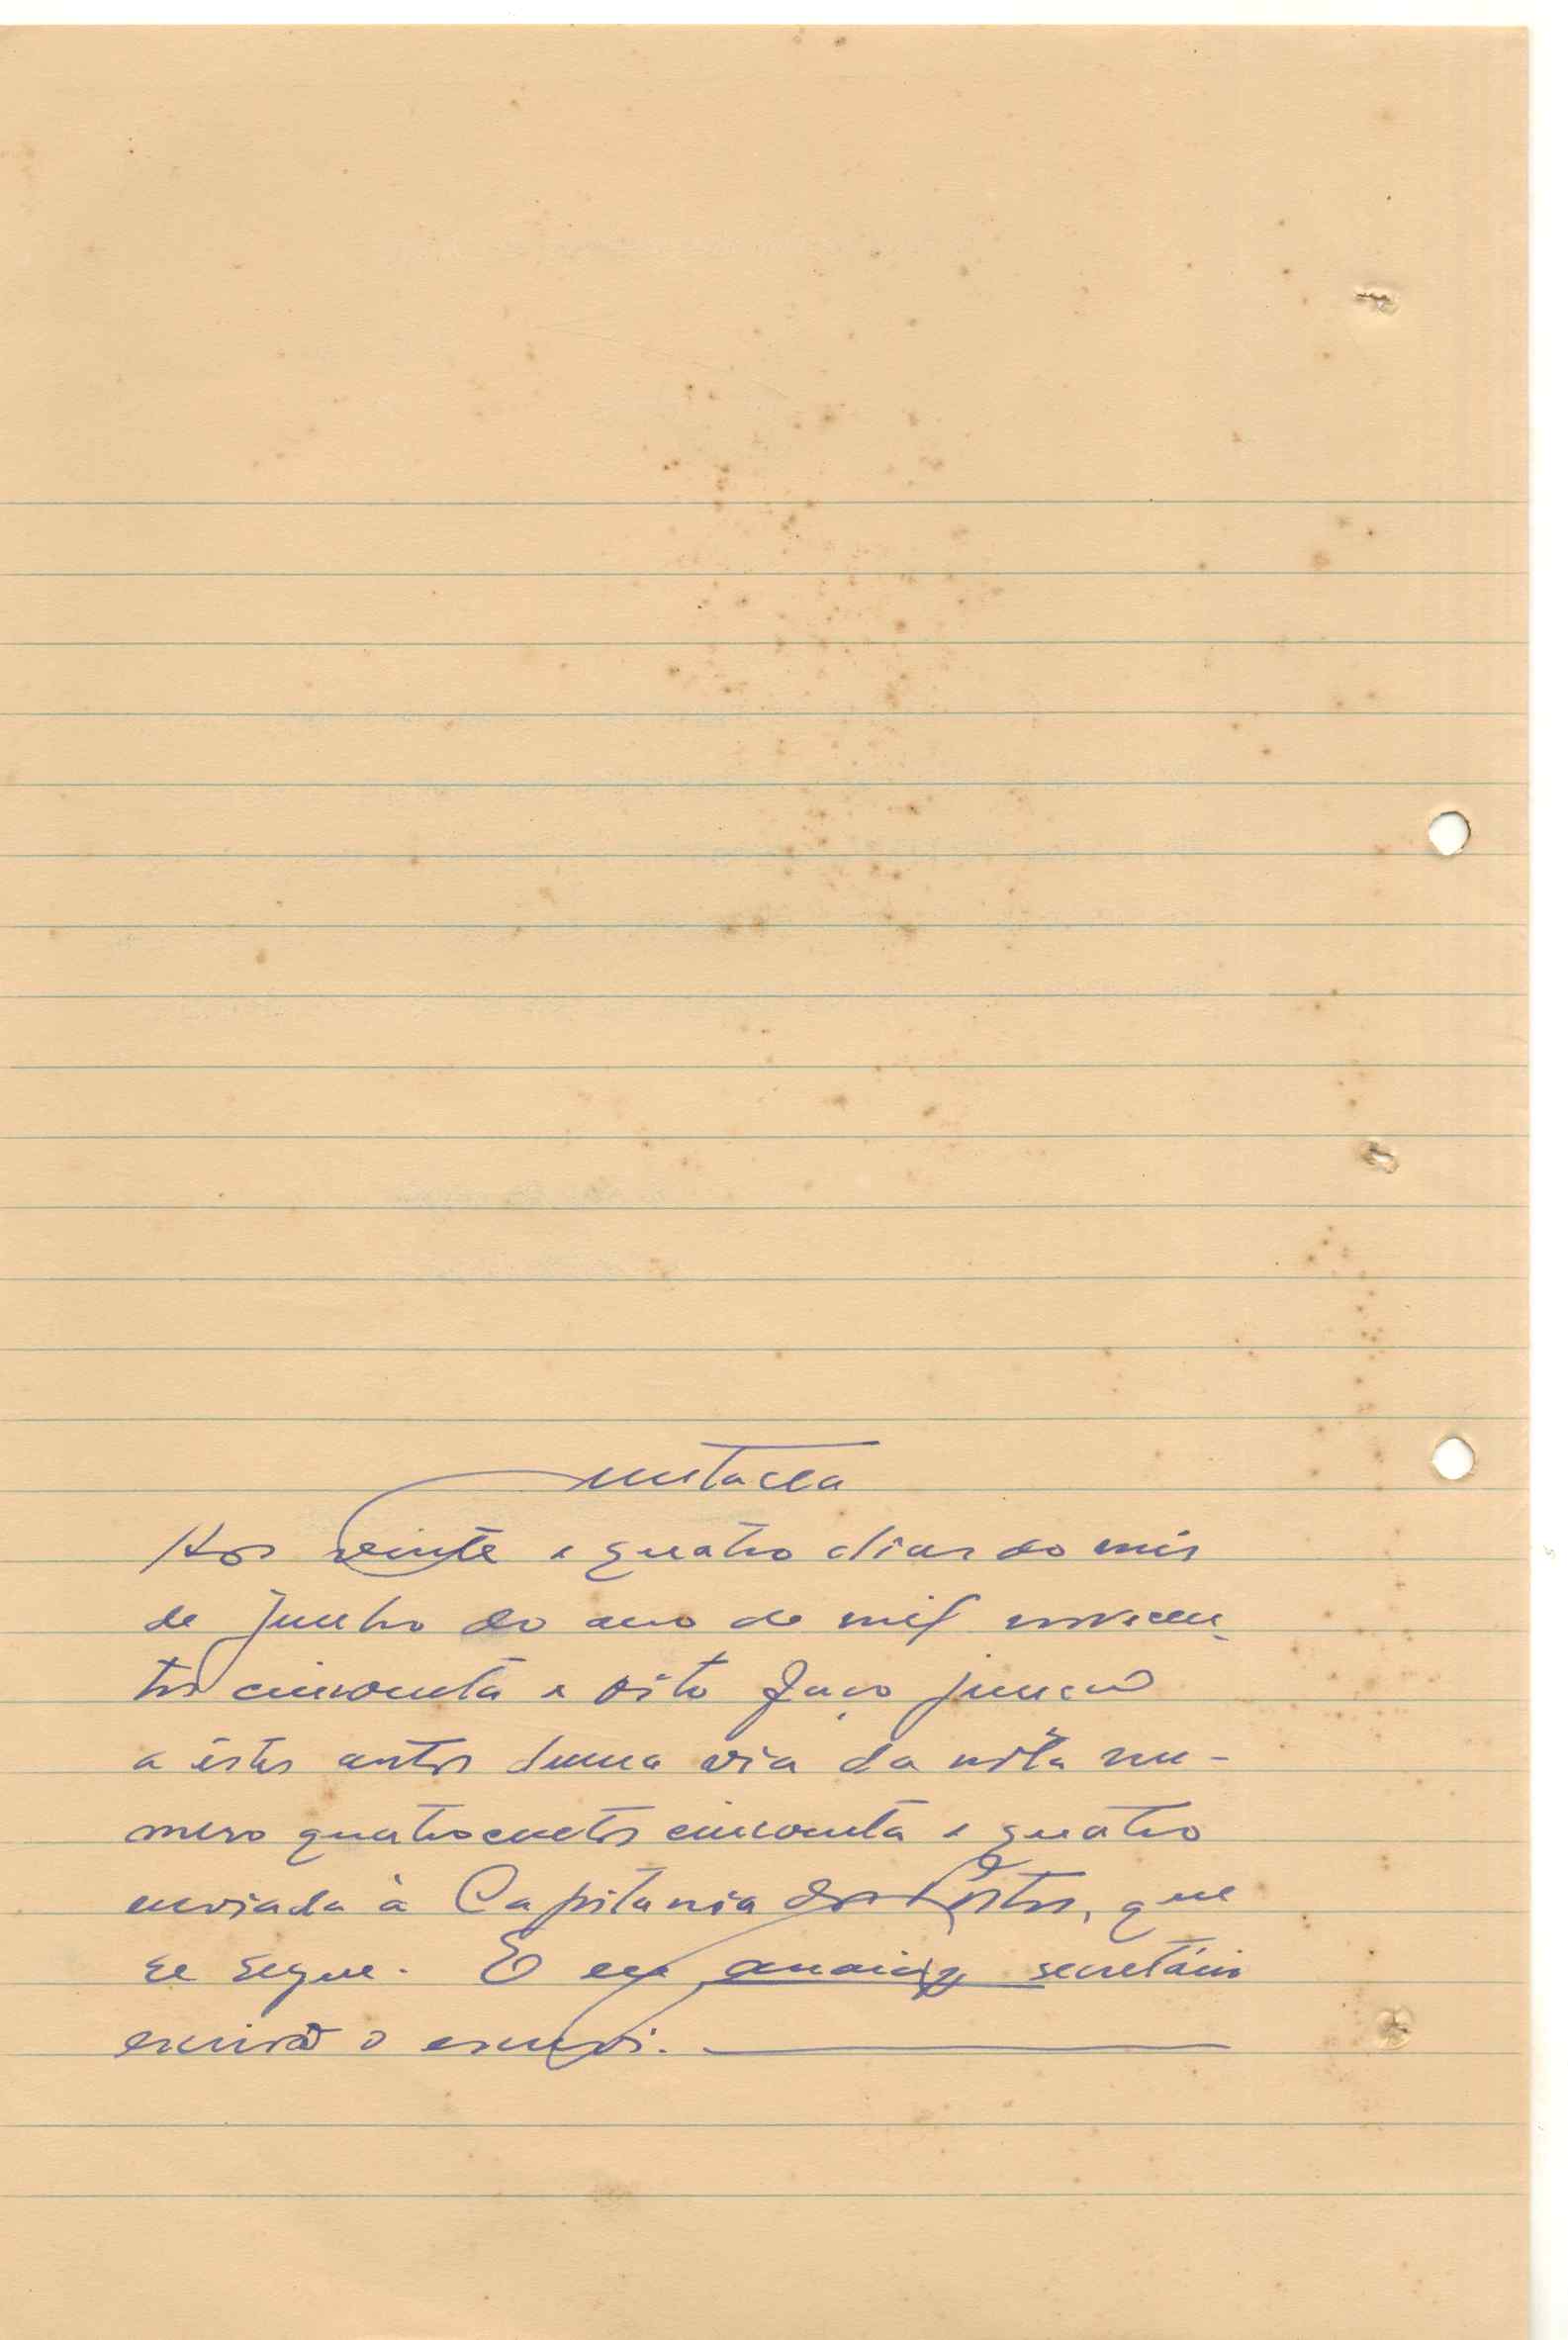 Juntada
Aos vinte e quatro dias do mês
de Junho do ano de mil novecen-
tos cincoenta e oito faço junção
a êstes autos duma via da nóta nu-
mero quatrocentos cincoenta e quatro
enviada à Capitania dos Pôrtos, que
se segue. E eu secretário
escrivão o escrevi.